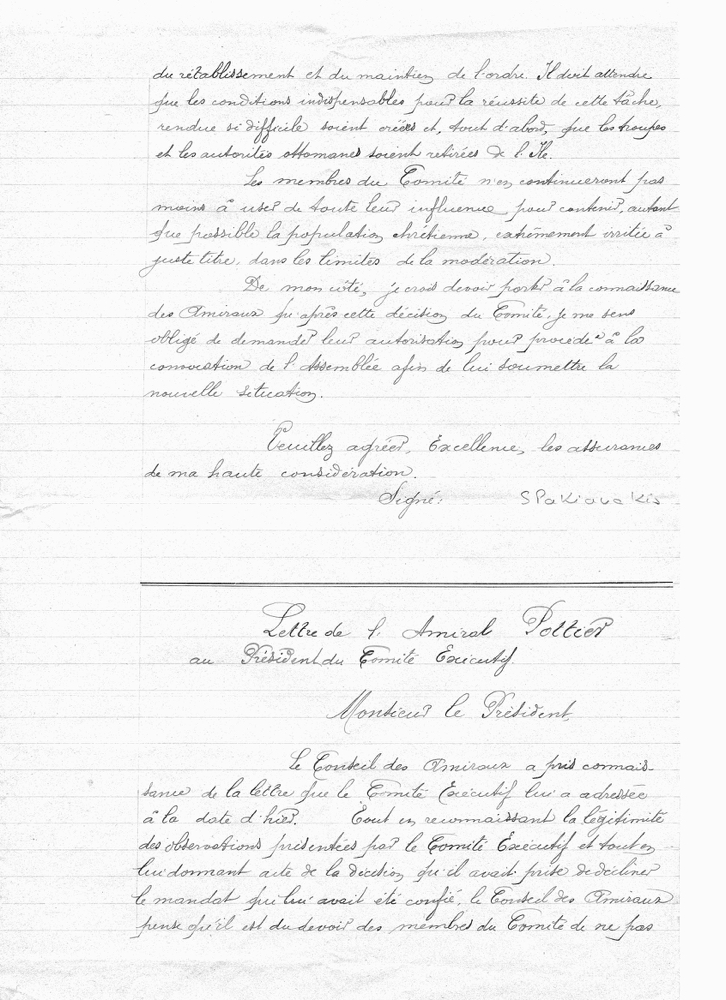 du rétablissement et du maintien de l'ordre. Il doit attendre
que les conditions indispensables pour la réussite de cette tâche,
rendue si difficile soient créées et, tout d'abord, que les troupes
et les autorités ottomanes soient retirées de l'Ile.
Les membres du Comité n'en continueront pas
moins à user de toute leur influence pour contenir, autant
que possible la population chrétienne, extrêmement irritée à
juste titre, dans les limites de la modération.
De mon côté, je crois devoir porter à la connaissance
des Amiraux qu'après cette décision du Comité, je me sens
obligé de demander leur autorisation pour procéder à la
convocation de l'Assemblée afin de lui soumettre la
nouvelle situation.
Veuillez agréer, Excellence, les assurances
de ma haute considération.
Signé: Sfakianakis
Lettre de l'Amiral Pottier
au Président du Comité Exécutif.
Monsieur le Président,
Le Conseil des Amiraux a pris connais-
sance de la lettre que le Comité Exécutif lui a adressée
à la date d'hier. Tout en reconnaissant la légitimité
des observations présentées par le Comité Exécutif et tout en
lui donnant acte de la décision qu'il avait prise de décliner
le mandat qui lui avait été confié, le Conseil des Amiraux
pense qu'il est du devoir des membres du Comité de ne pas